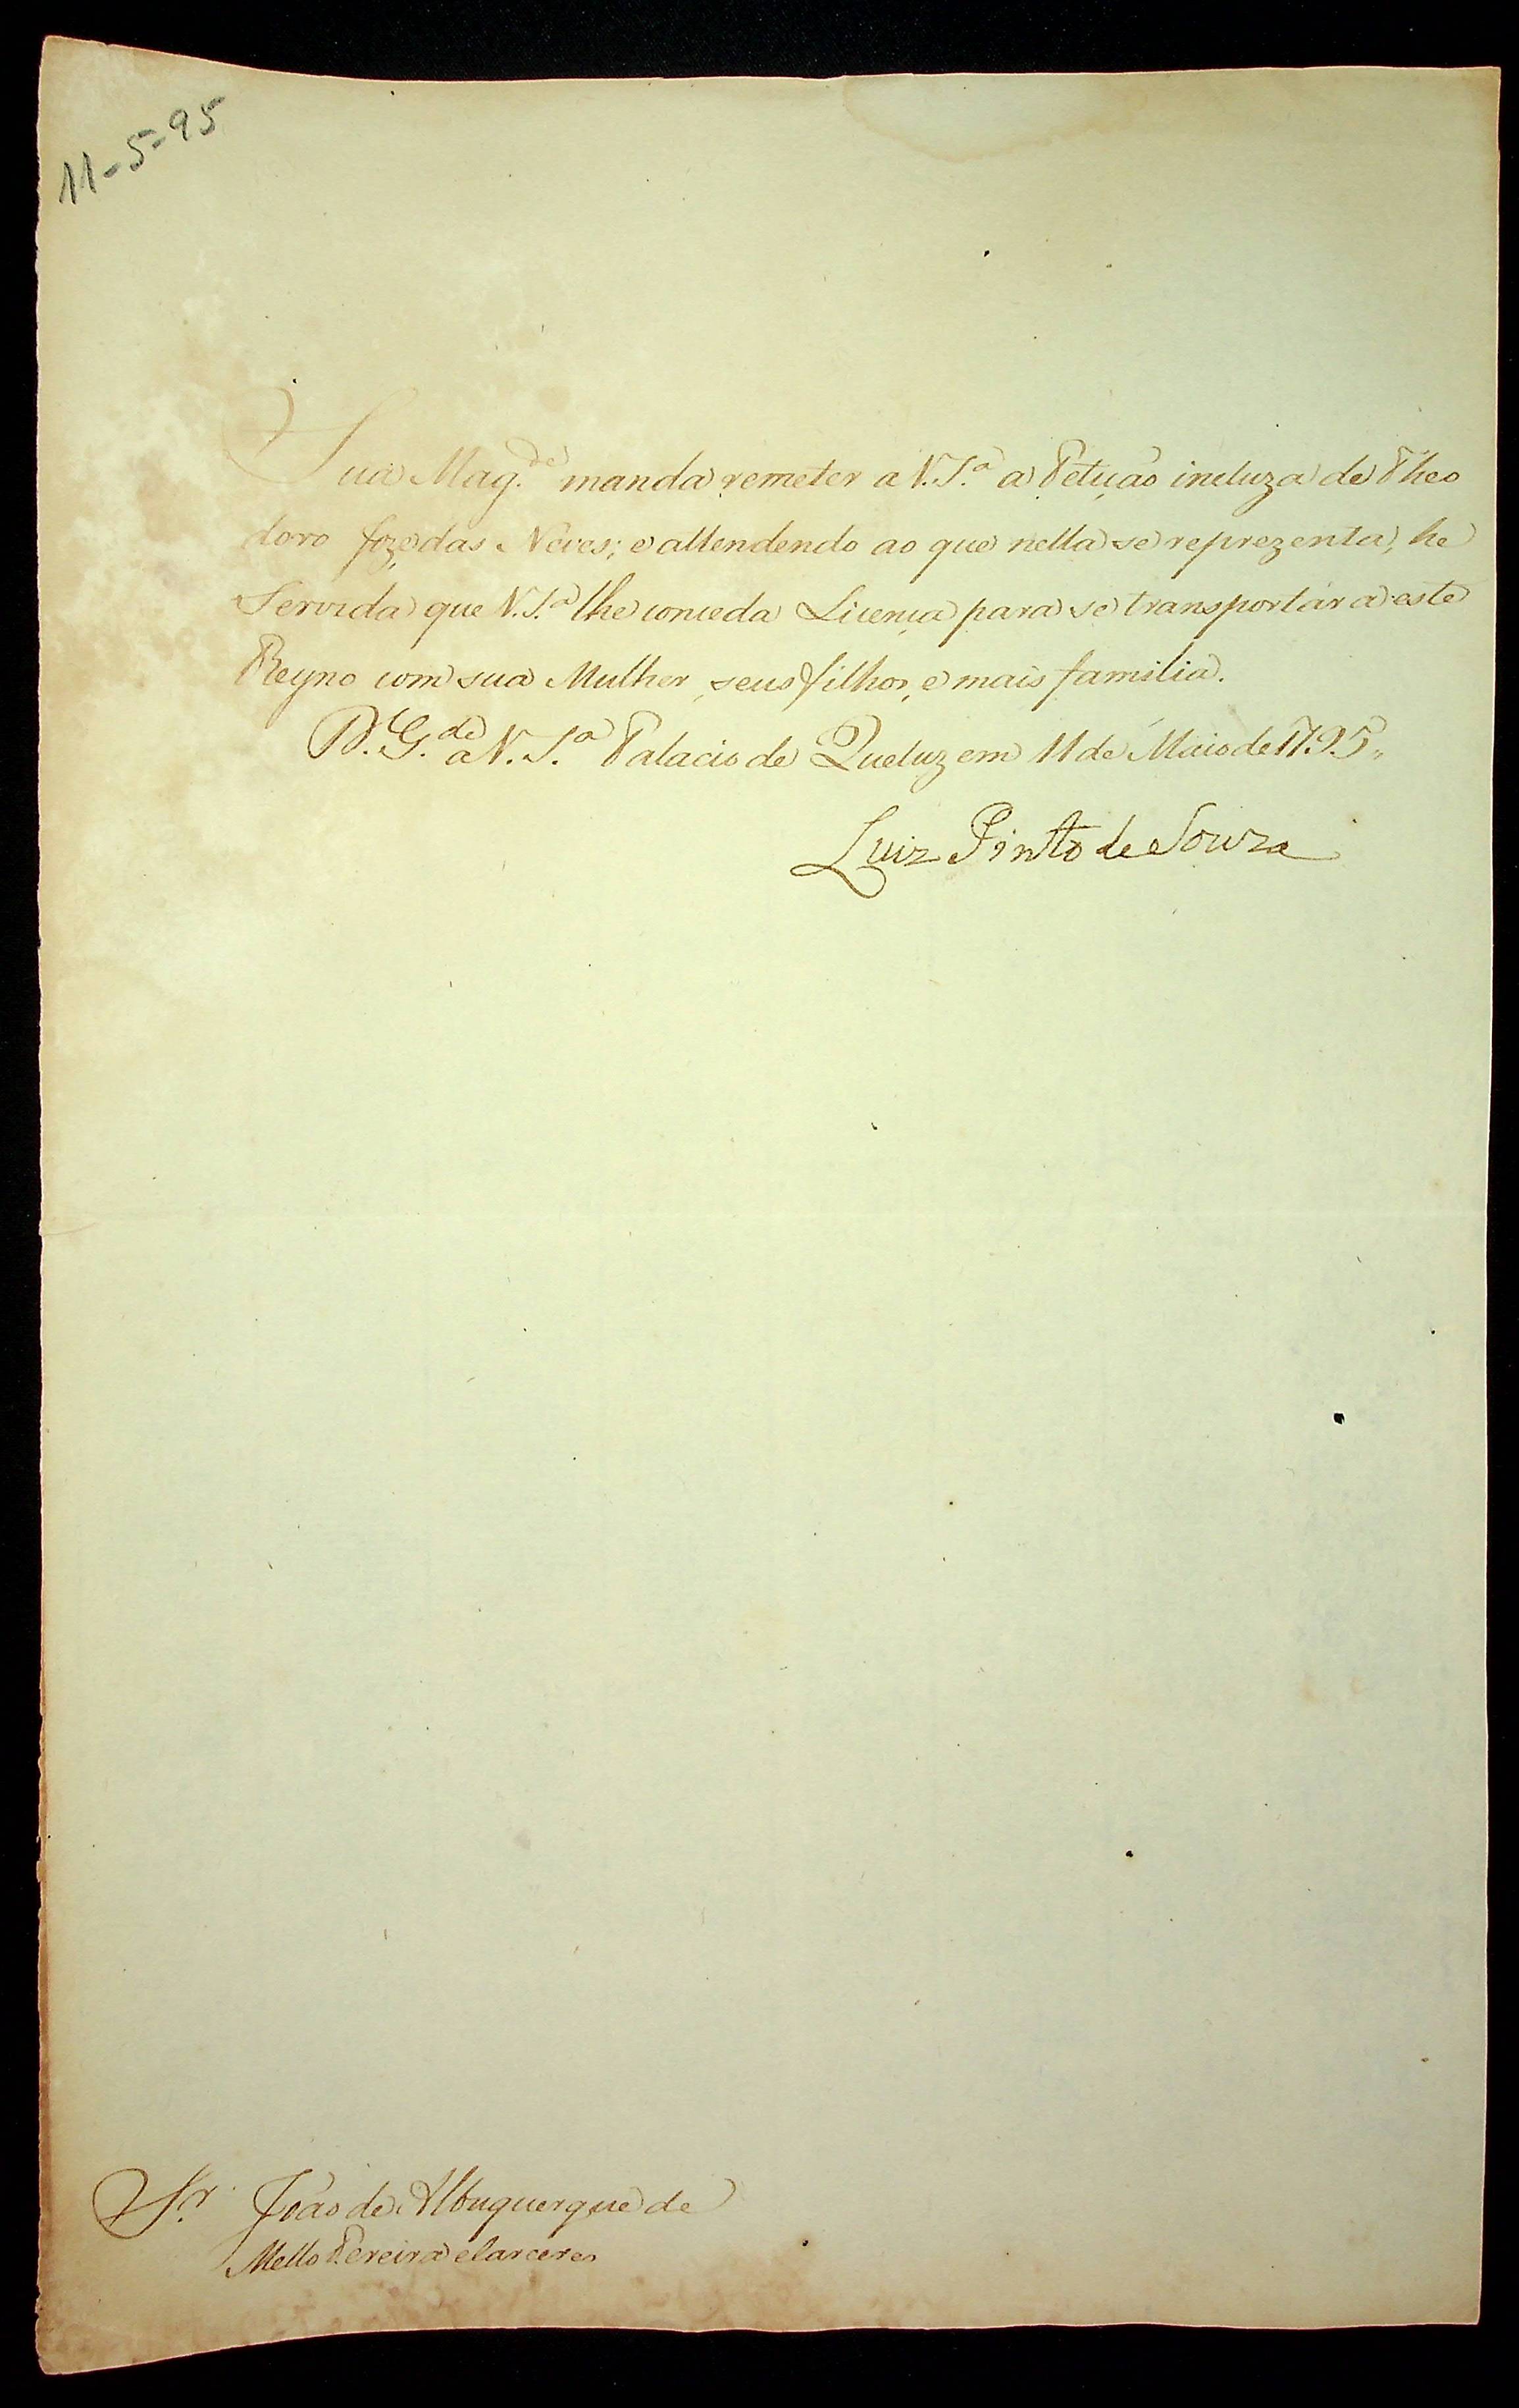 11-5-95
Sua Mag.de manda remeter a V.S.a a Petição incluza de Theo
doro José das Neves; e attendendo ao que nella se reprezenta, he
Servida que V.S.a lhe conceda Licença para se transportár a este
Reyno com sua Mulher, seus filhos, e mais familia.
D.s G.de a V.S.a Palacio de Queluz em 11 de Maio de 1795,,
Luiz Pinto de Souza
S.r João de Albuquerque de
Mello Pereira e Carceres